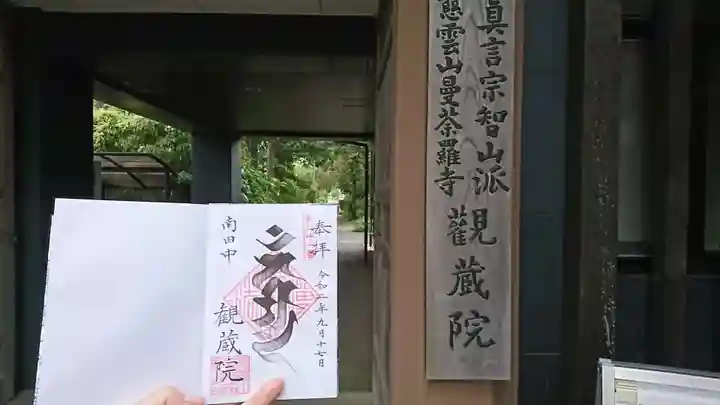 眞言宗智山派
慈雲山曼荼羅寺
觀蔵院
奉拝
令和二年九月十七日
南田中
觀蔵院